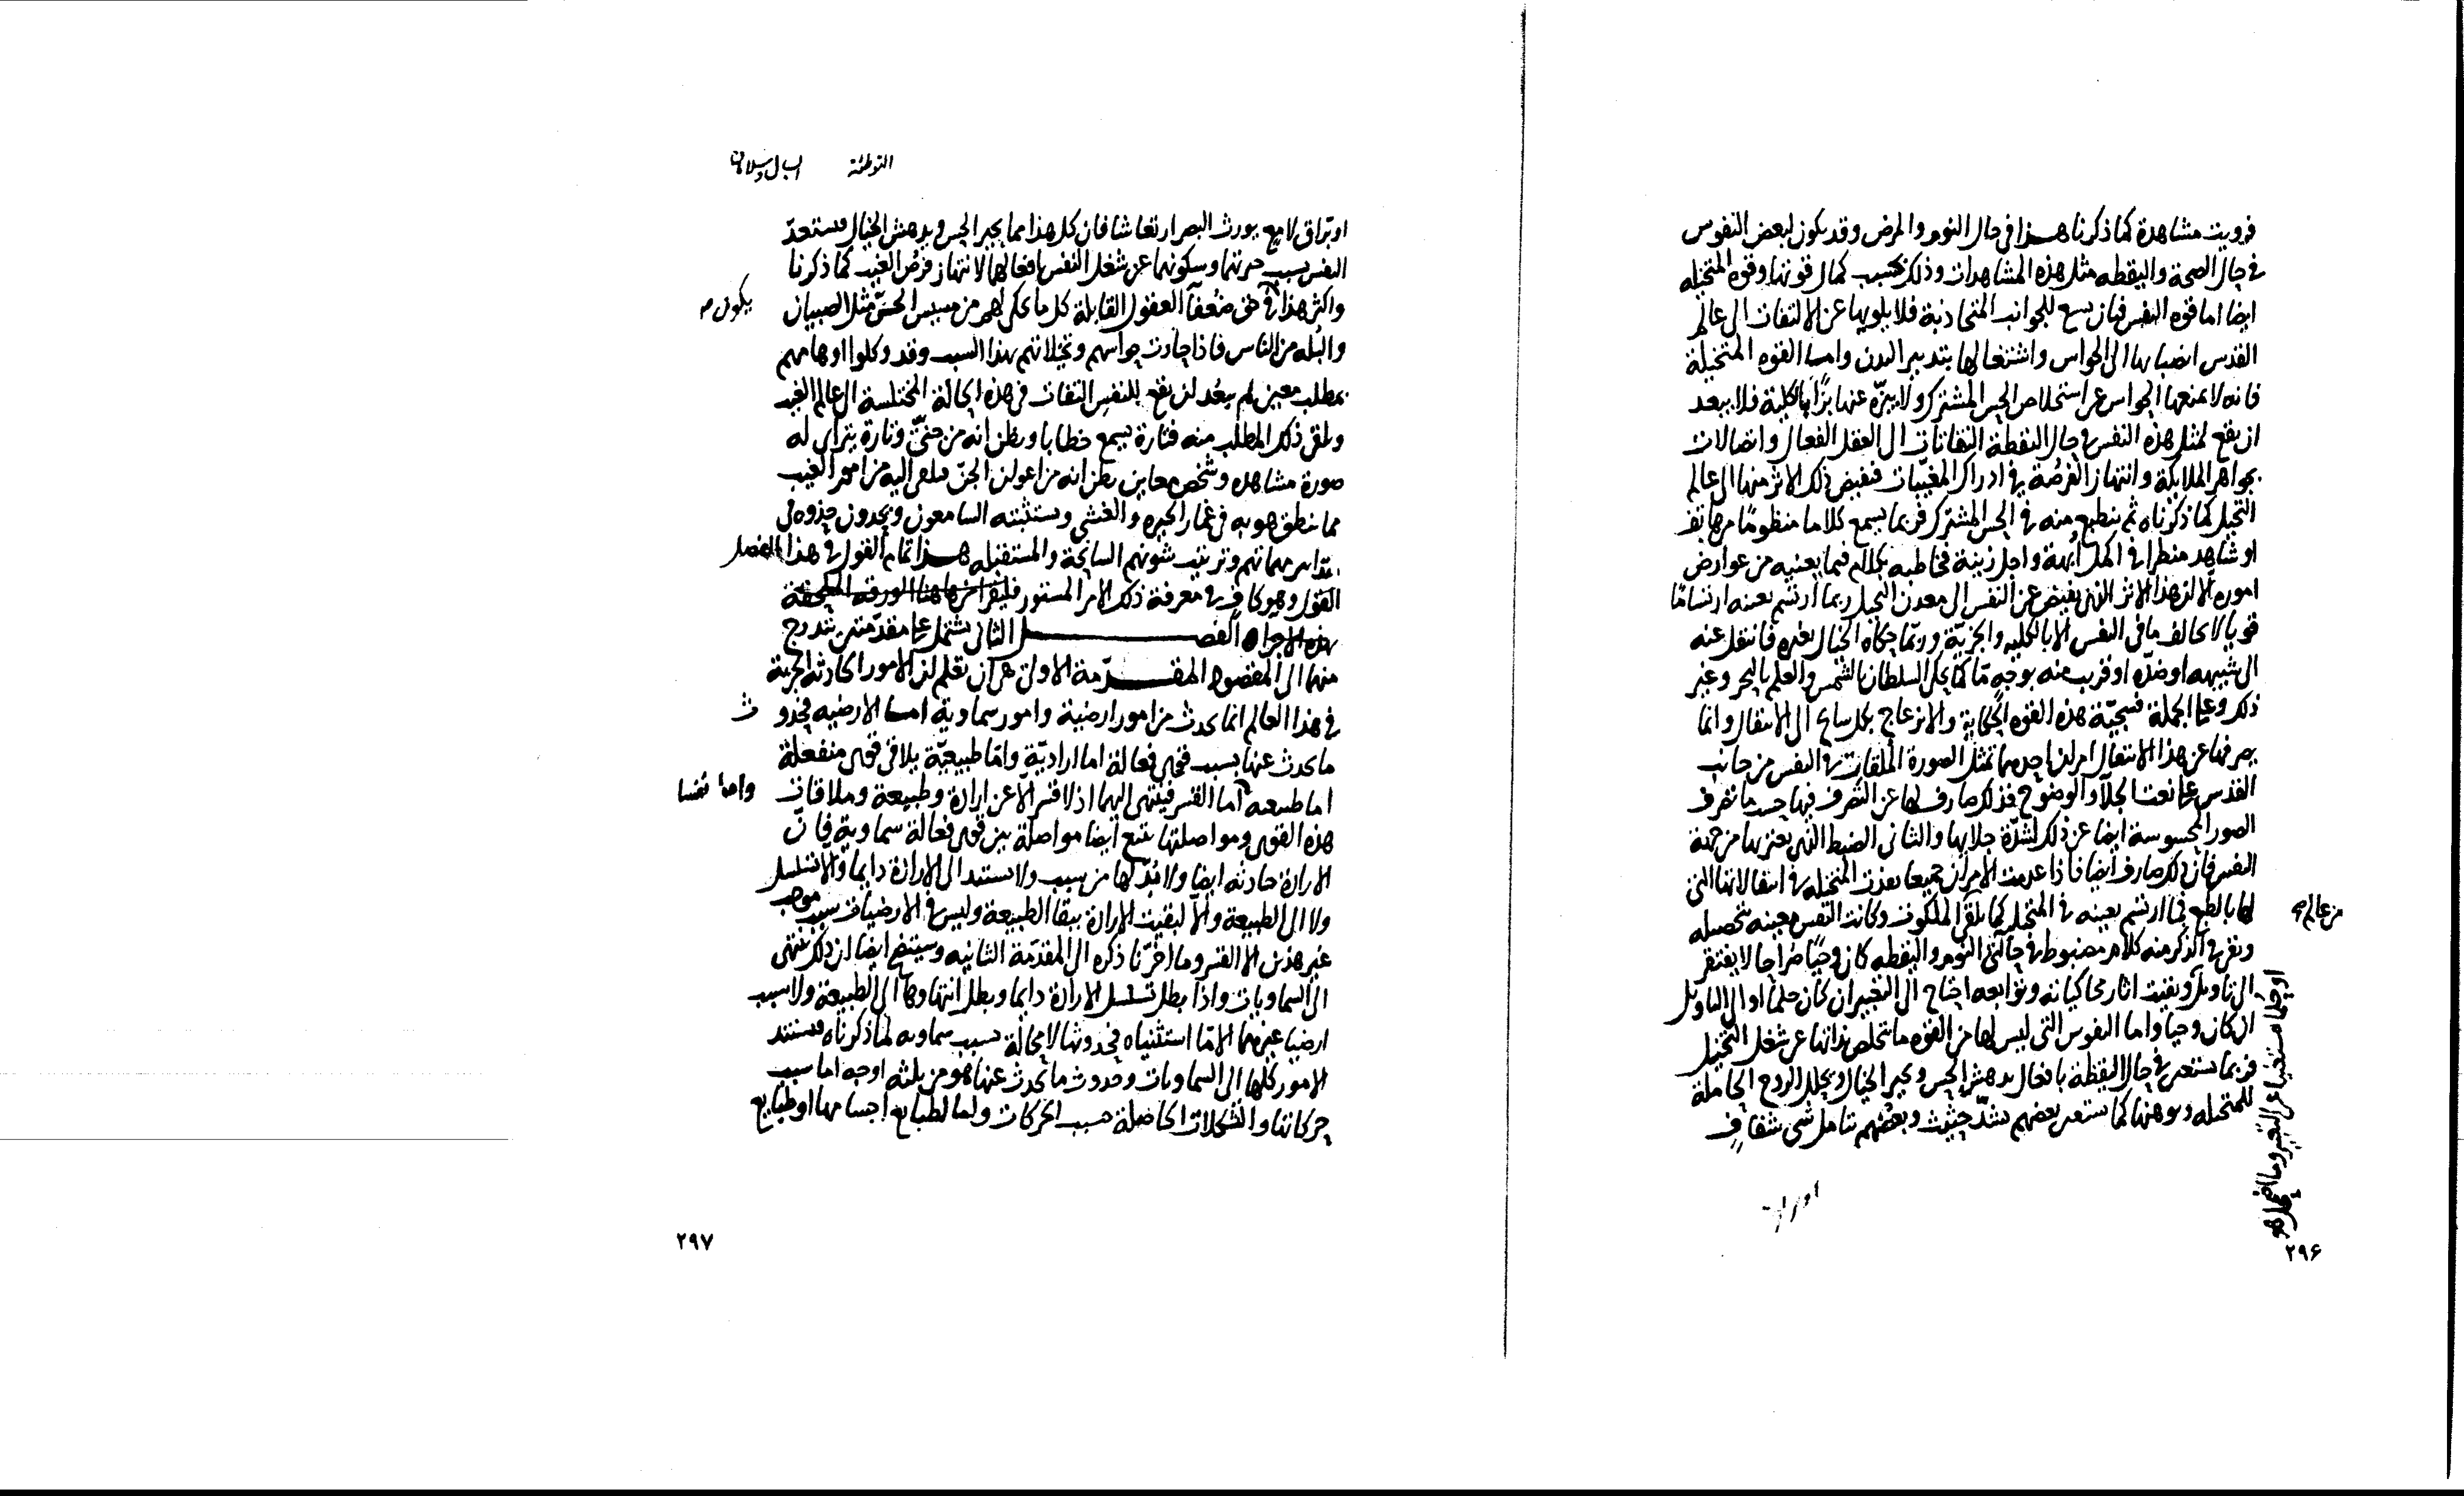 فرويت مشاهدة كما ذكرنا هذا فى حال النوم والمرض وقد يكون لبعض النفوس
فى حال الصحة واليقظه مثل هذه المشاهدات وذلك بسبب كمال قوتها وقوه المتخيله
ايضا اما قوه النفس فبان يسع للجوانب المتجاذبة فلا يلويها عن الالتفات الى عالم
القدس انصبابها الى الحواس واشتغالها بتدبير البدن واما القوه المتخيلة
فانه لا يمنعها الحواس عن استخلاص الحس المشترك ولا يبزّه عنها بزًّا بالكلية فلا يبعد
ان يقع لمثل هذه النفس فى حال اليقظة التفاتات الى العقل الفعال واتصالات
بجواهر الملايكة وانتهاز الفرصة فى ادراك المغيّبات فيفيض ذلك الاثر منها الى عالم
التخيل كما ذكرناه ثم ينطبع منه فى الحس المشترك فربما يسمع كلاما منظومًا من هاتف
او شاهد منظرا فى اكمل اُبهة واجل زينة فخاطبه بكلام فيما يعنيه من عوارض
اموره الا ان هذا الاثر الذى يفيض عن النفس الى معدن التخيل ربما ارتسم بعينه ارتسامًا
قويا لا يخالف ما فى النفس الا بالكليه والجزئيّة وربّما حكاه الخيال بغيره فانتقل عنه
الى شبيهه او ضدّه او قريب منه بوجهٍ مّا كما يحكى السلطان بالشمس والعلم بالبحر وغير
ذلك وعلى الجملة فسجيّة هذه القوه الحكاية والانزعاج بكل سانح الى الانتقال وانما
يصرفها عن هذا الانتقال امران احدهما تمثل الصورة الملقات فى النفس من جانب
القدس على نعت الجلآء والوضوح فذلك صارف لها عن التصرف فيها حسب ما تصرف
الصور المحسوسة ايضا عن ذلك لشدّة جلايها والثانى الضبط الذى يعتريها من جهة
النفس فان ذلك صارف ايضا فاذا عدمت الامران جميعا نفذت المتخيله فى انتقالاتها التى
لها بالطبع فما ارتسم بعينه فى المتخيل كما يلقى الملكوت وكانت النفس معينه بتحصيله
من عالم صح
وبقى فى الذكر منه كلام مضبوط فى حالتى النوم واليقظه كان وحيًا صُراحا لا يفتقر
الى تاويل وبقيت اثار محاكياته وتوابعه احتاج الى التعبير ان كان حلما او الى التاويل
ان كان وحيا واما النفوس التى ليس لها من القوه ما يتخلص بذاتها عن شغل التخيل
فربما تستعين فى حال اليقظة بافعال يدهش الحس ويحير الخيال ويحلل الروح الحاملة
للمتخيله ويوهنها كما يستعين بعضهم بشدّ حثيث وبعضهم بتامل شى شفافٍ
٢٩۶
التوطئة
او براق لامع يورث البصر ارتعاشا فان كل هذا مما يحير الحس ويدهش الخيال فيستعدّ
النفس بسبب حيرتها وسكونها عن شغل النفس بافعالها لانتهاز فرص الغيب كما ذكرنا
واكثر هذا فى حق ضعفآ العقول القابلة كل ما يحكى لهم من مسيس الحسّ مثل الصبيان
يكون صح
والبُله من الناس فاذا حارت حواسهم وتخيلاتهم بهذا السبب وقد وكلوا اوهامهم
بمطلب معين لم يبعُد ان يقع للنفس التفات فى هذه الحالة المختلسة الى عالم الغيب
وتلقى ذلك المطلب منه فتارة يسمع خطابا ويظن انه من جنىّ وتارة يترااى له
صورة مشاهده وشخص معاين يظن انه من اعوان الجنّ فيلقى اليه من امور الغيب
مما ينطق هو به فى غمار الحيره والغشى ويستثبته السامعون ويحذون حذوه فى
تدابير مهماتهم وترتيب شئونهم السانحة والمستقبله هذا تمام القول فى هذا الفصل
القول وهو كاف فى معرفة ذلك الامر المستور فليقرا من هاهنا الورقه الملحقة
بهذه الاجزاء الفصل الثانى يشتمل على مقدّمتين يتدرج
منهما الى المقصود المقدّمة الاولى هى ان تعلم ان الامور الحادثه الجزئية
فى هذا العالم انما يحدث من امور ارضية وامور سماوية اما الارضيه فحدوث
ما يحدث عنها بسبب قوى فعالة اما اراديّة واما طبيعيّة يلاقى قوى منفعلة
اما طبيعيه اما القسر فينتهى اليهما اذ لا قسر الا عن ارادة وطبيعة وملاقات
هذه القوى ومواصلتها يتبع ايضا مواصلة بين قوى فعالة سماوية فان
الارادة حادثه ايضا ولا بُدّ لها من سبب ولا يستند الى الارادة دايما والا تسلسل
ولا الى الطبيعة والاّ لبقيت الارادة ببقا الطبيعة وليس فى الارضيات سبب موجب
غير هذين الا القسر وما اخّرنا ذكره الى المقدّمة الثانيه وسيتضح ايضا ان ذلك ينتهى
الى السماويات واذا بطل تسلسل الارادة دايما وبطل انتهاوها الى الطبيعة ولا سبب
ارضيا غيرهما الا ما استثنياه فحدوثها لا محالة بسبب سماويه لما ذكرناه فيستند
الامور كلها الى السماويات وحدوث ما يحدث عنها هو من ثلثه اوجه اما بسبب
حركاتنا والشكلات الحاصلة حسب الحركات واما لطبايع اجسامها او طبايع
٢٩٧